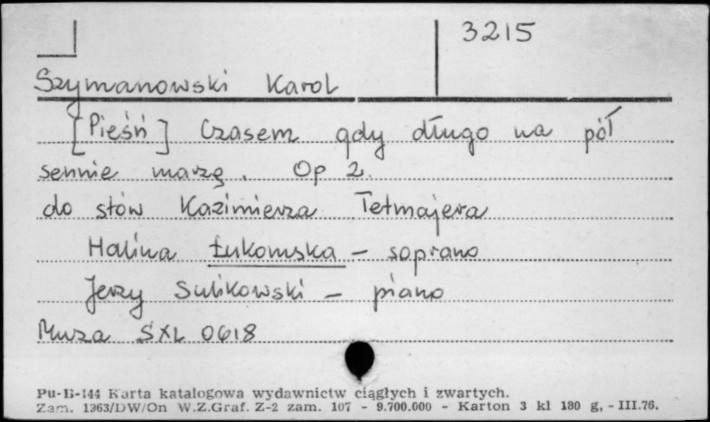 3215
Szymanowski Karol
[Pieśń] Czasem gdy długo na pół
sennie marzę. Op 2.
do słów Kazimierza Tetmajera
Halina Łukomska – soprano
Jerzy Sulikowski – piano
Muza SXL 0618
Pu-B-144 Karta katalogowa wydawnictw ciągłych i zwartych.
Zam. 1363/DW/On W.Z.Graf. Z-2 zam. 107 - 9.700.000 - Karton 3 kl 180 g. - III.76.